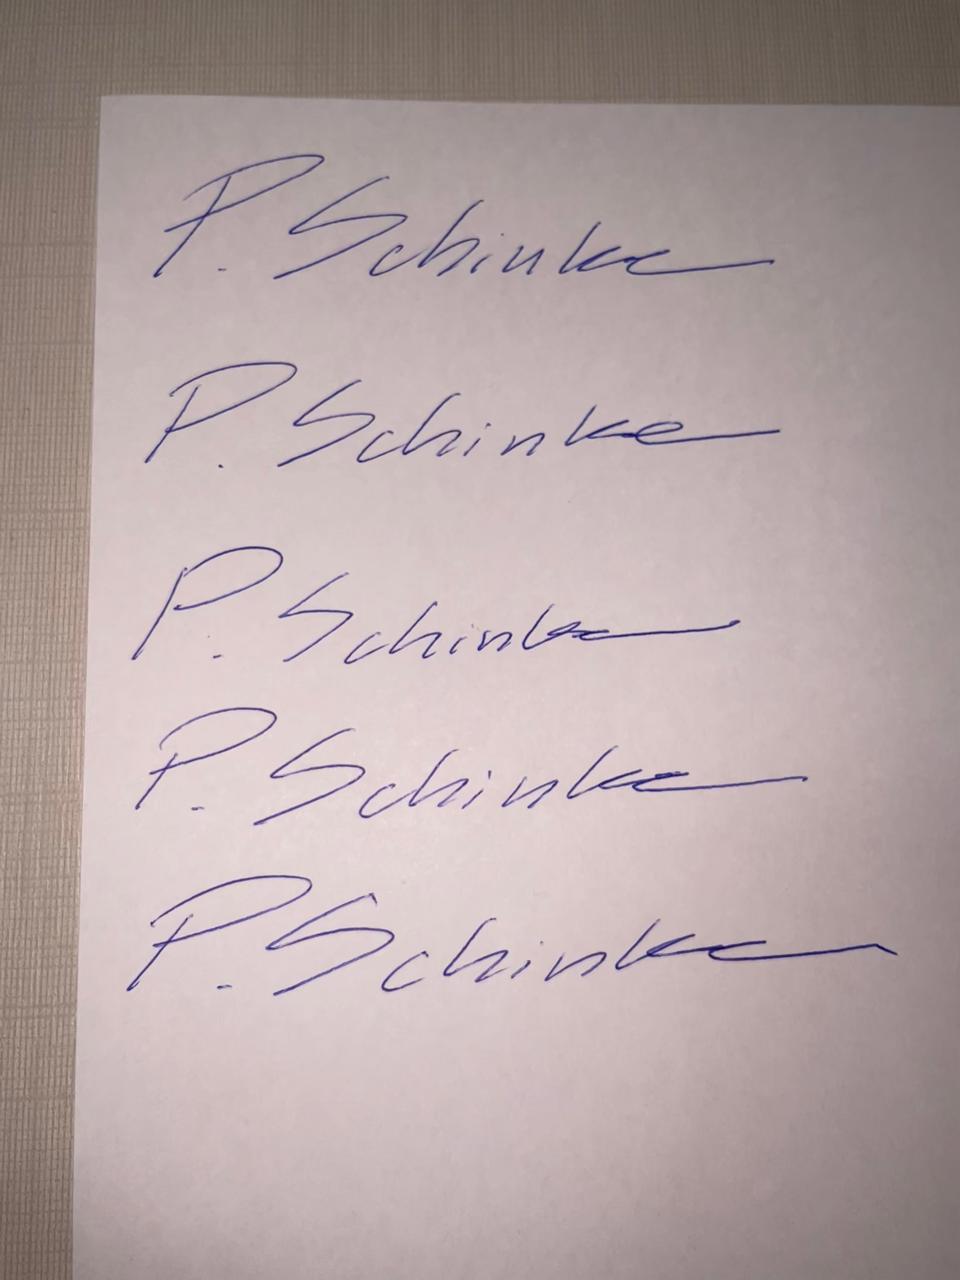 P. Schinke
P. Schinke
P. Schinke
P. Schinke
P. Schinke